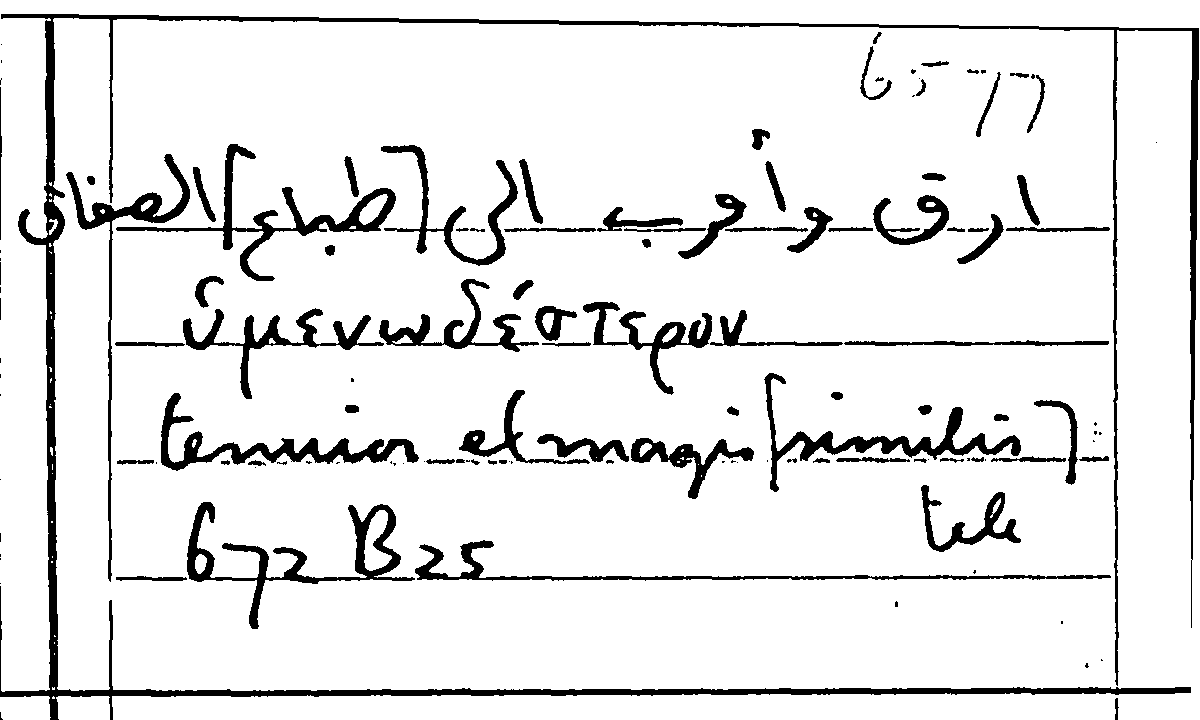 6577
ارق وأقرب الى [طباع] الصفاق
ὑμενωδέστερον
tenuior et magis [similis]
tele
672 B25